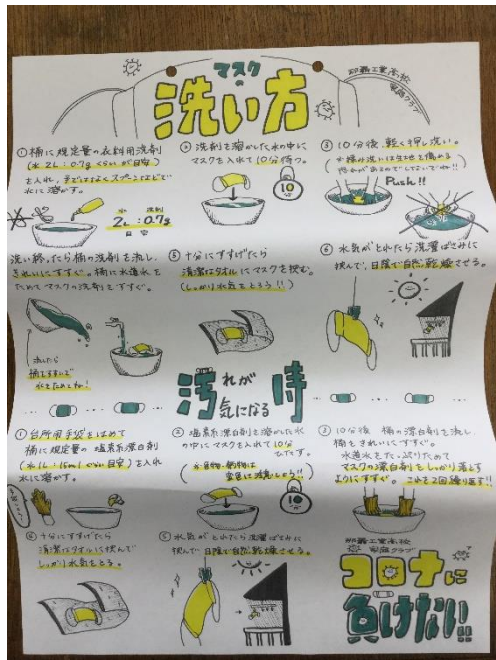 マスク
の
洗い方
那覇工業高校
家庭クラブ
① 桶に規定量の衣料用洗剤
(水2L:0.7gくらいが目安)
を入れ、
水に溶かす。
水 洗剤
2L:0.7g
目安
② 洗剤を溶かした水の中に
マスクを入れて10分待つ。
10
③ 10分後、軽く押し洗い。
Push!!
洗い終ったら桶の洗剤を流し、
きれいにすすぐ。桶に水道水を
ためてマスクの洗剤をすすぐ。
流したら
桶もすすいで
水をためてね!
⑤ 十分にすすげたら
清潔なタオルにマスクを挟む。
(しっかり水気をとろう!!)
⑥ 水気がとれたら洗濯ばさみに
挟んで、日陰で自然乾燥させる。
汚れが
気になる時
① 台所用手袋をはめて
桶に規定量の塩素系漂白剤
(水1L:15mlくらい目安)を入れ
水に溶かす。
② 塩素系漂白剤を溶かした水
の中にマスクを入れて10分
ひたす。
10
③ 10分後 桶の漂白剤を流し
桶をきれいにすすぐ。
水道水をたっぷりためて
マスクの漂白剤をしっかり落す
ようにすすぐ。これを2回繰り返す!!
④ 十分にすすげたら
清潔なタオルに挟んで
しっかり水気をとる。
⑤ 水気がとれたら洗濯ばさみに
挟んで、日陰で自然乾燥させる。
那覇工業高校
家庭クラブ
コロナに
負けない!!